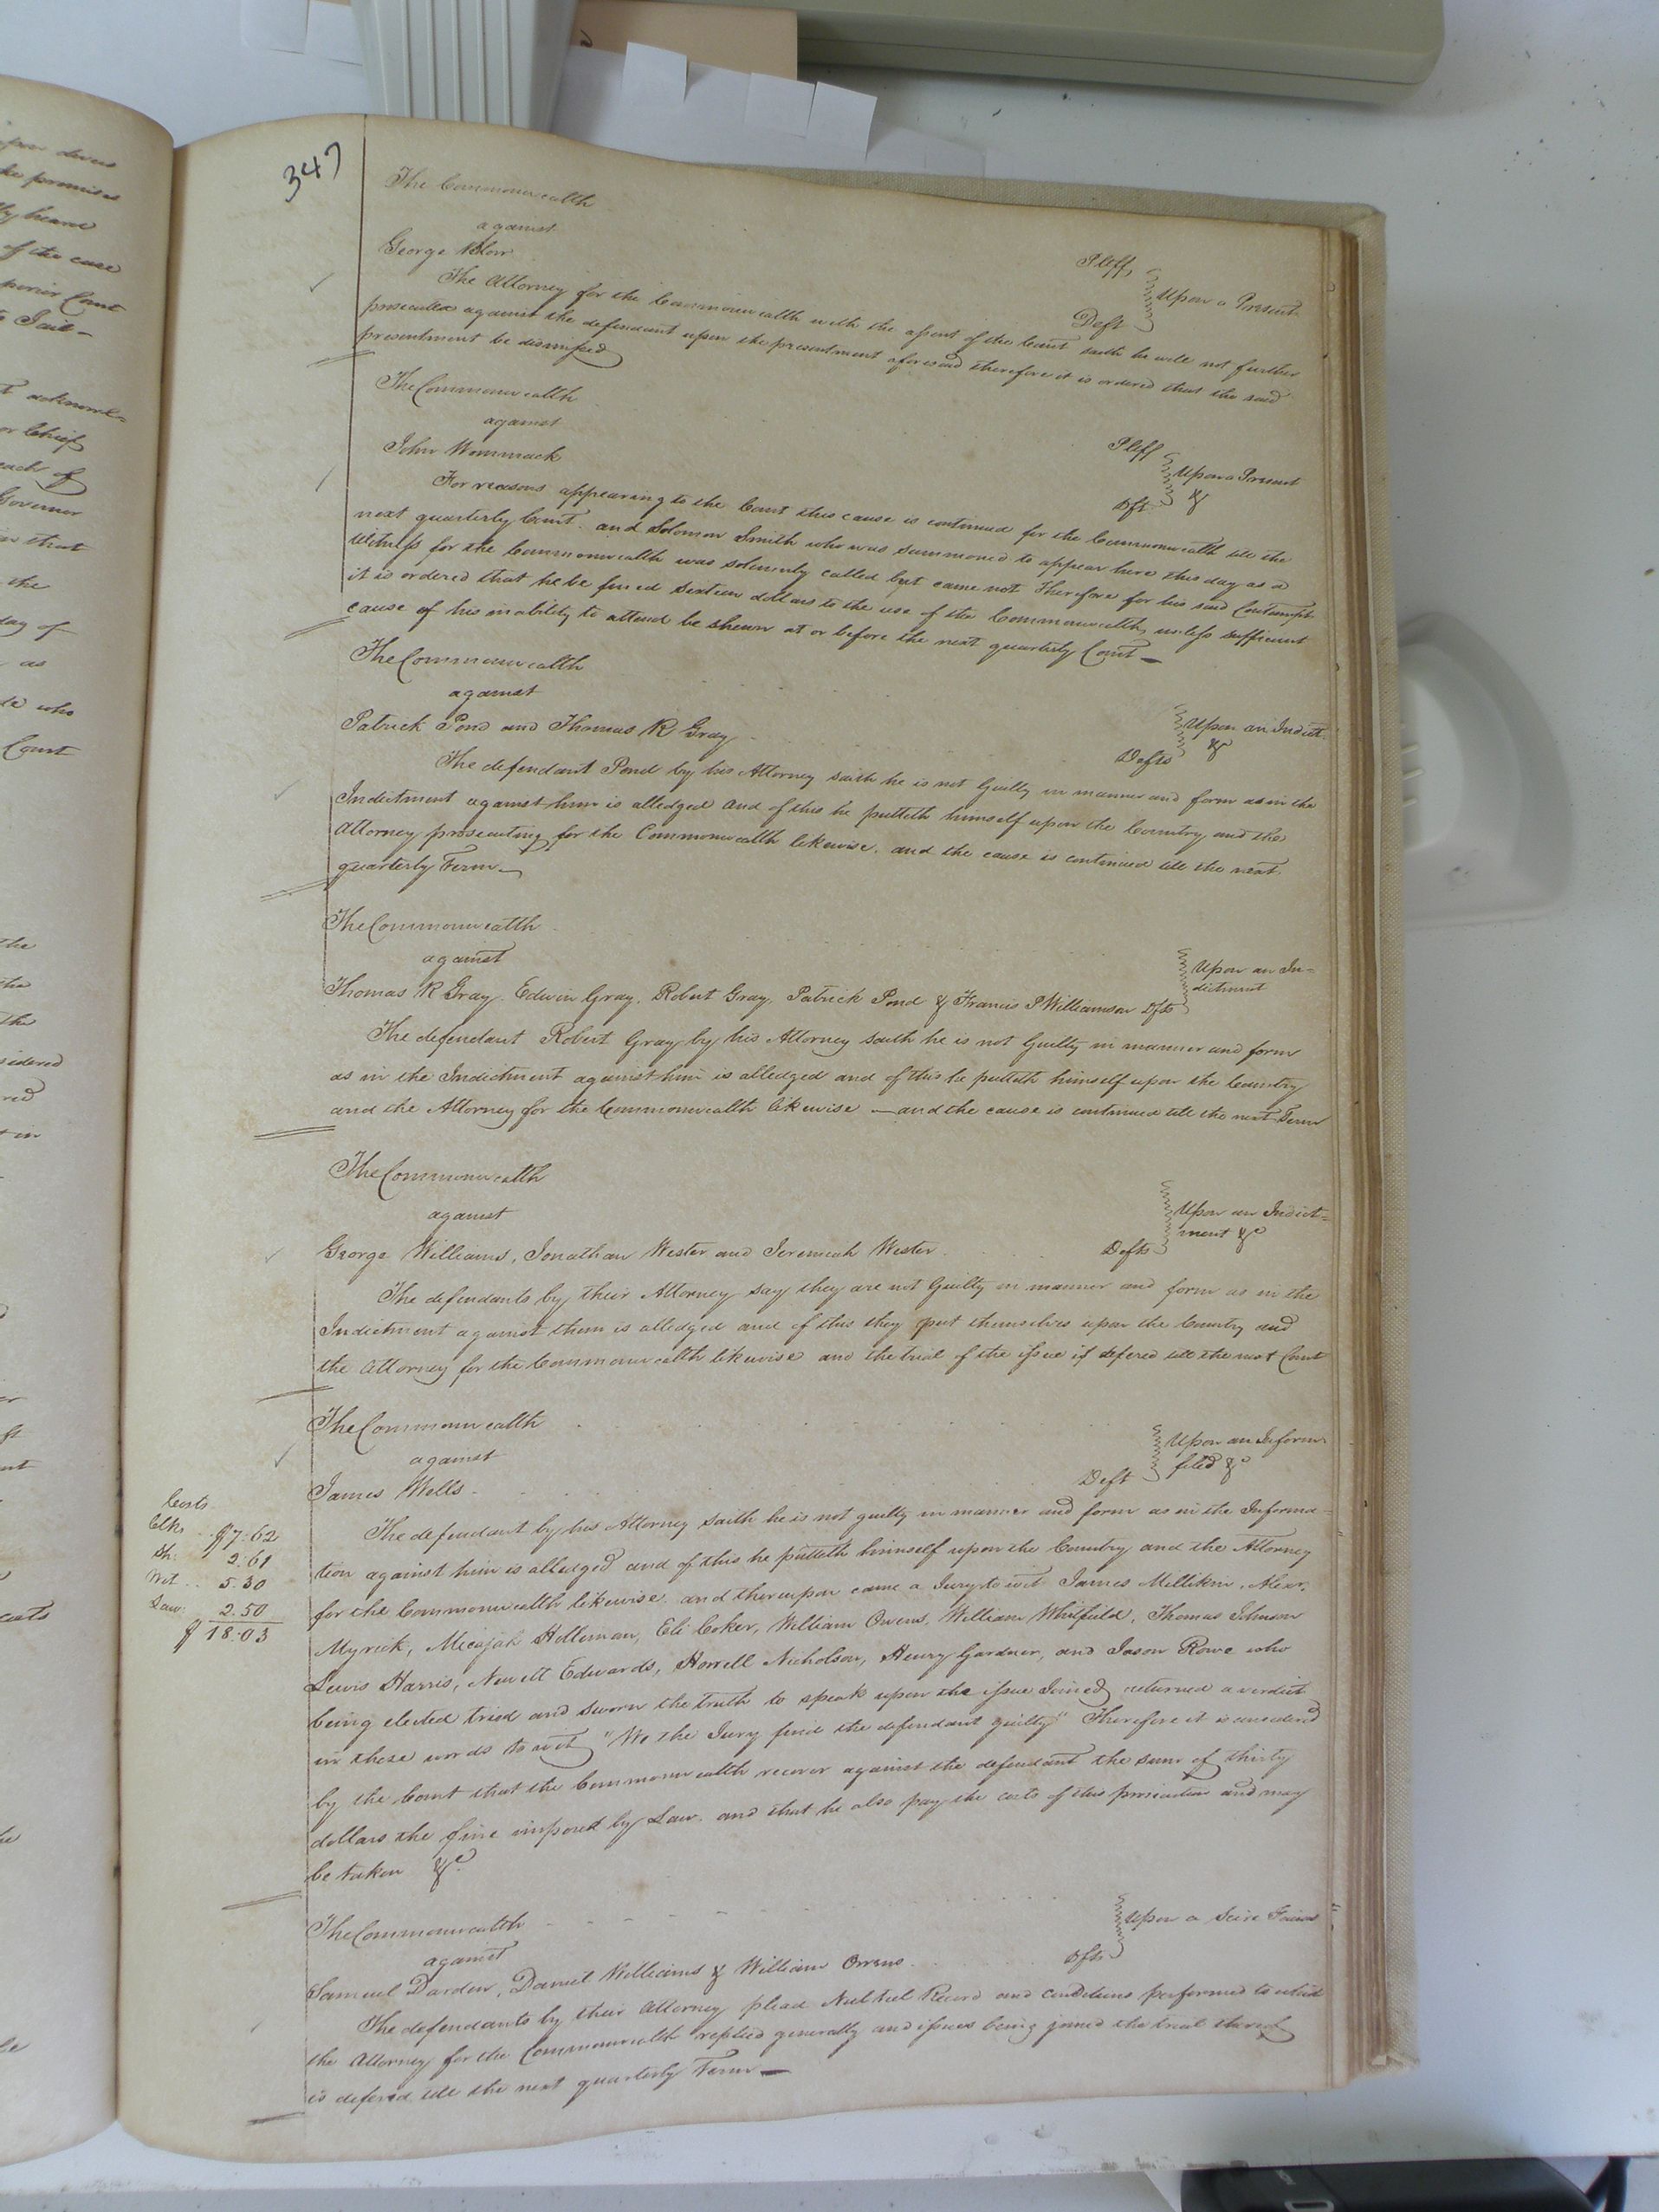 347
The Commonwealth
Pltff
against
Upon a Present
George
Deft
The Attorney for the Commonwealth with the assent of the Court saith he will not further
prosecute against the defendant upon the presentment aforesaid therefore it is ordered that the said
presentment be dismissed
The Commonwealth
Pltff
against
Upon a Present
John Wommack
Dft
&c
For reasons appearing to the Court this cause is continued for the Commonwealth till the
next quarterly Court. and Solomon Smith who was summoned to appear here this day as a
Witness for the Commonwealth was solemnly called but came not Therefore for his said Contempt
it is ordered that he be fined sixteen dollars to the use of the Commonwealth, unless sufficient
cause of his inability to attend be shewn at or before the next quarterly Court —
The Commonwealth
against
Upon an Indict.
Patrick Pond and Thomas R Gray
Defts
&c
The defendant Pond by his Attorney saith he is not Guilty in manner and form as in the
Indictment against him is alledged and of this he putteth himself upon the Country and the
Attorney prosecuting for the Commonwealth likewise. and the cause is continued till the next
quarterly Term —
The Commonwealth
against
Upon an In=
dictment
Thomas R Gray, Edwin Gray, Robert Gray, Patrick Pond & Francis P Williamson Dfts
The defendant Robert Gray by his Attorney saith he is not Guilty in manner and form
as in the Indictment against him is alledged and of this he putteth himself upon the Country
and the Attorney for the Commonwealth likewise — and the cause is continued till the next Term
The Commonwealth
against
Upon an Indict=
ment &c
George Williams, Jonathan Wester and Jeremiah Wester
Defts
The defendants by their Attorney say they are not Guilty in manner and form as in the
Indictment against them is alledged and of this they put themselves upon the Country and
the Attorney for the Commonwealth likewise and the trial of the issue if defered till the next Court
The Commonwealth
against
Upon an Inform
filed &c
James Wells
Deft
The defendant by his Attorney saith he is not guilty in manner and form as in the Informa=
tion against him is alledged and of this he putteth himself upon the Country and the Attorney
for the Commonwealth likewise. and thereupon came a Jury to wit James Millikin, Alexr.
Myrick, Micajah Holleman, Eli Coker, William Owens, William Whitfield, Thomas Johnson
Lewis Harris, Newitt Edwards, Howell Nicholson, Henry Gardner, and Jason Rowe who
being elected tried and sworn the truth to speak upon the issue Joined returned a verdict
in these words to wit "We the Jury find the defendant guilty" Therefore it is considered
by the Court that the Commonwealth recover against the defendant the sum of thirty
dollars the fine imposed by Law. and that he also pay the costs of this prosecution and may
be taken &c
Costs
Clk. $7.62
Sh. 2.61
Wit. 5.30
Law. 2.50
$18.03
The Commonwealth
against
Upon a Scire Facias
Samuel Darden, Daniel Williams & William Owens
Dfts
The defendants by their Attorney plead Nul tiel Record and conditions performed to which
the Attorney for the Commonwealth replied generally and issues being joined the trial thereof
is defered till the next quarterly Term —